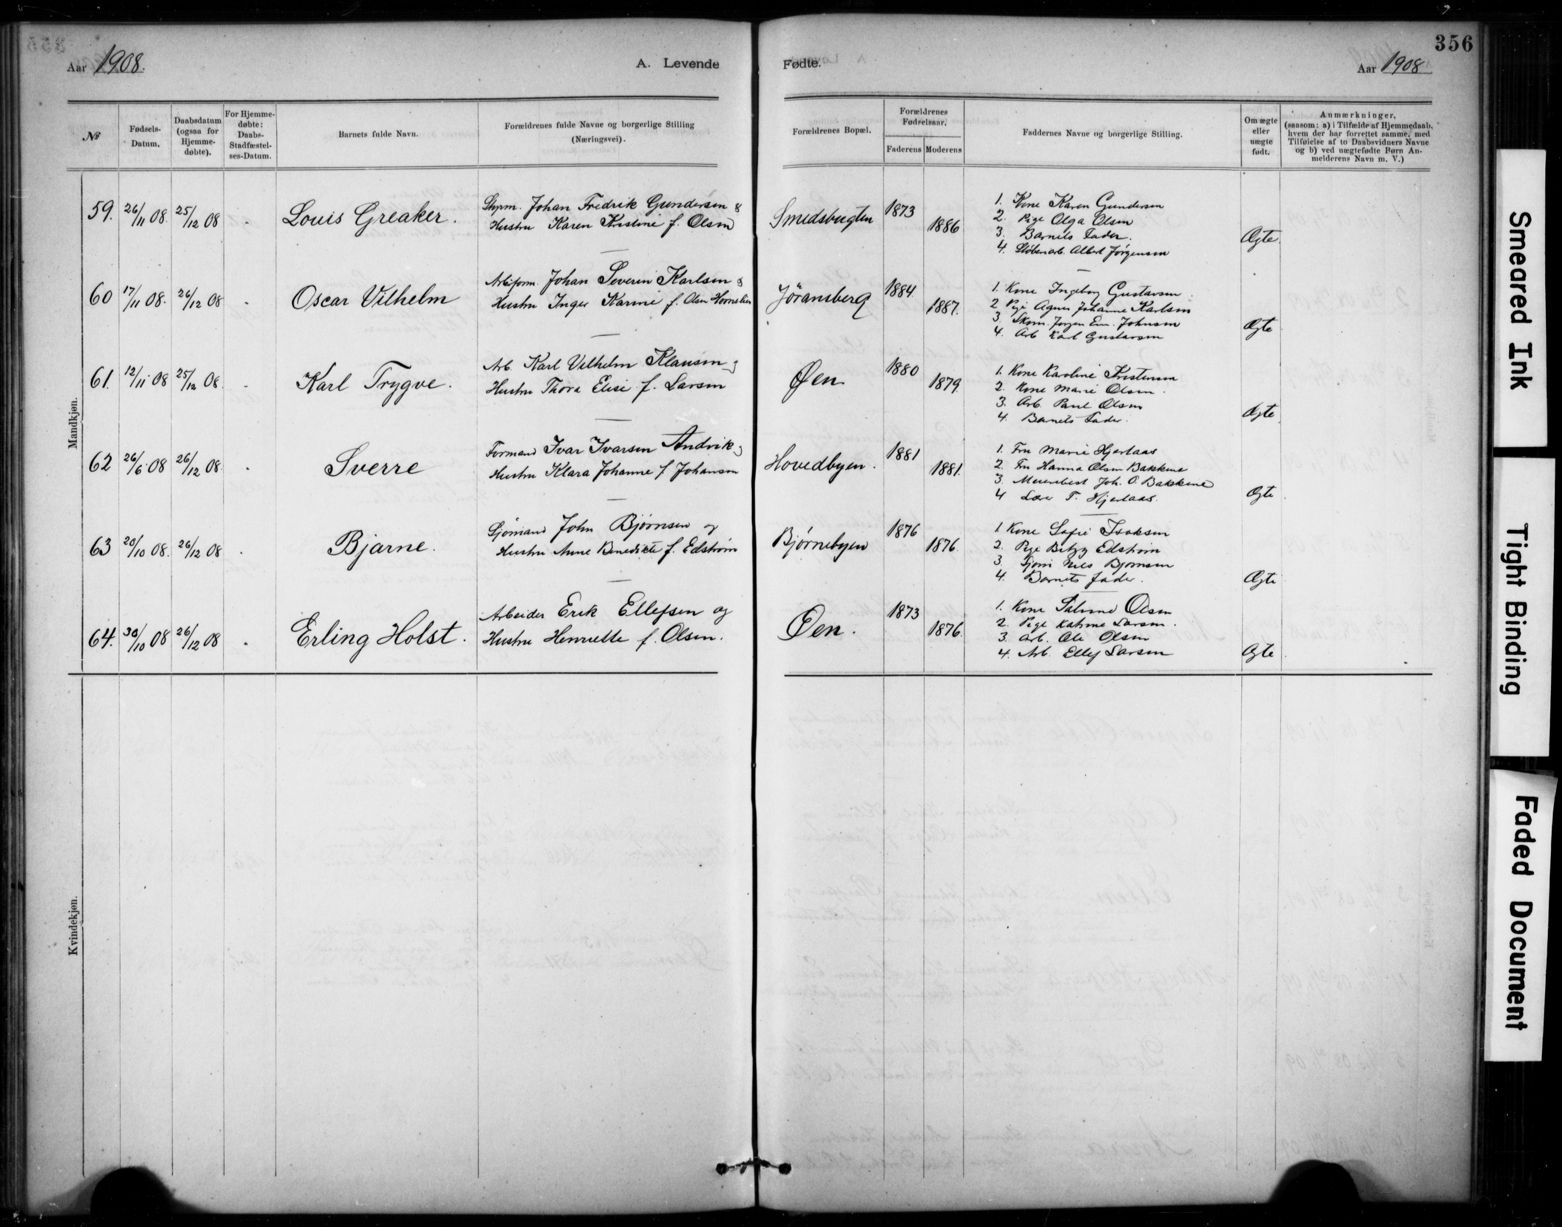 356
Aar 1908.
A. Levende
Fødte.
Aar 1908
№
Fødsels-Datum.
Daabsdatum (ogsaa for Hjemme-døbte).
For Hjemme-døbte: Daabs-Stadfæstel-ses-Datum.
Barnets fulde Navn.
Forældrenes fulde Navne og borgerlige Stilling (Næringsvei).
Forældrenes Bopæl.
Forældrenes Fødselsaar.
Faderens
Moderens
Faddernes Navne og borgerlige Stilling.
Om ægte eller uægte født.
Anmærkninger,
(saasom: a) i Tilfælde af Hjemmedaab, hvem der har forrettet samme, med Tilføielse af to Daabsvidners Navne og b) ved uægtefødte Børn An-melderens Navn m. V.)
Mandkjøn.
59. 26/11 08 25/12 08 Louis Greaker.
Styrm. Johan Fredrik Gundersen &
Hustru Karen Kristine f. Olsen
Smedsbugten 1873 1886
1. Kone Karen Gundersen
2. Pige Olga Olsen
3. Barnets Fader.
4. Albert Jørgensen
Ægte
60 17/11 08. 26/12 08 Oscar Vilhelm
Arbform Johan Severin Karlsen &
Hustru Inger Karine f. Olsen
Jøransberg 1884 1887.
1. Kone Ingeborg Gustavsen
2. Pige Agnes Johanne Karlsen
3. Skom. Jørgen Em. Johnsen
4. Arb Karl Gustavsen
Ægte
61. 12/11 08 25/12 08 Karl Trygve.
Arb Karl Vilhelm Klausen &
Hustru Thora Elise f. Larsen
Øen 1880 1879
1. Kone Karoline Kristensen
2. Kone Marie Olsen.
3. Arb Paul Olsen
4. Barnets Fader.
Ægte
62 26/6 08 26/12 08 Sverre
Formand Ivar Ivarsen Andvik &
Hustru Klara Johanne f Johansen
Hovedbyen. 1881 1881.
1. Fru Marie Hjerlaas
2. Fru Hanna Olsen Bakkene
3. Meieribest Joh. O. Bakkene
4 T. Hjerlaas.
Ægte
63 20/10 08. 26/12 08 Bjarne.
Sjømand John Bjørnsen og
Hustru Anne Benedikte f. Edstrøm
Bjørnebyen 1876 1876
1. Kone Sofie Isaksen
2. Pige Betzy Edstrøm
3. Sjøm Nils Bjørnsen
4. Barnets fader.
Ægte
64. 30/10 08 26/12 08 Erling Holst.
Arbeider Erik Ellefsen og
Hustru Henriette f. Olsen.
Øen. 1873 1876.
1. Kone Olsen
2. Pige Katrine Larsen.
3. Arb. Ole Olsen
4. Arb Ellef Larsen
Ægte
Kvindekjøn.
Smeared Ink
Tight Binding
Faded Document